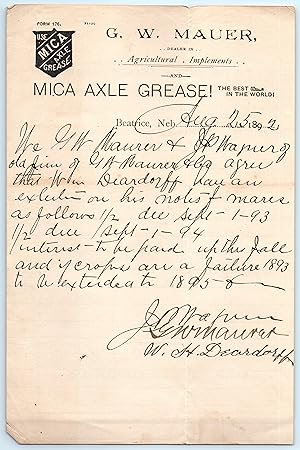 FORM 176.
USE
MICA
AXLE
GREASE
G. W. MAUER,
DEALER IN
Agricultural Implements
AND
MICA AXLE GREASE! THE BEST IN THE WORLD!
Beatrice, Neb Aug 25 1892
We G W Maurer & J G Wagner of
old firm of G W Maurer & Co agree
that Wm Diardorff have an
extention on his note & mares
as follows 1/2 due Sept-1-93
1/2 due Sept-1-94
interest to be paid up this fall
and if crops are a failure 1893
to be extended to 1895
J G Wagner
G W Maurer
W. H. Deardorff